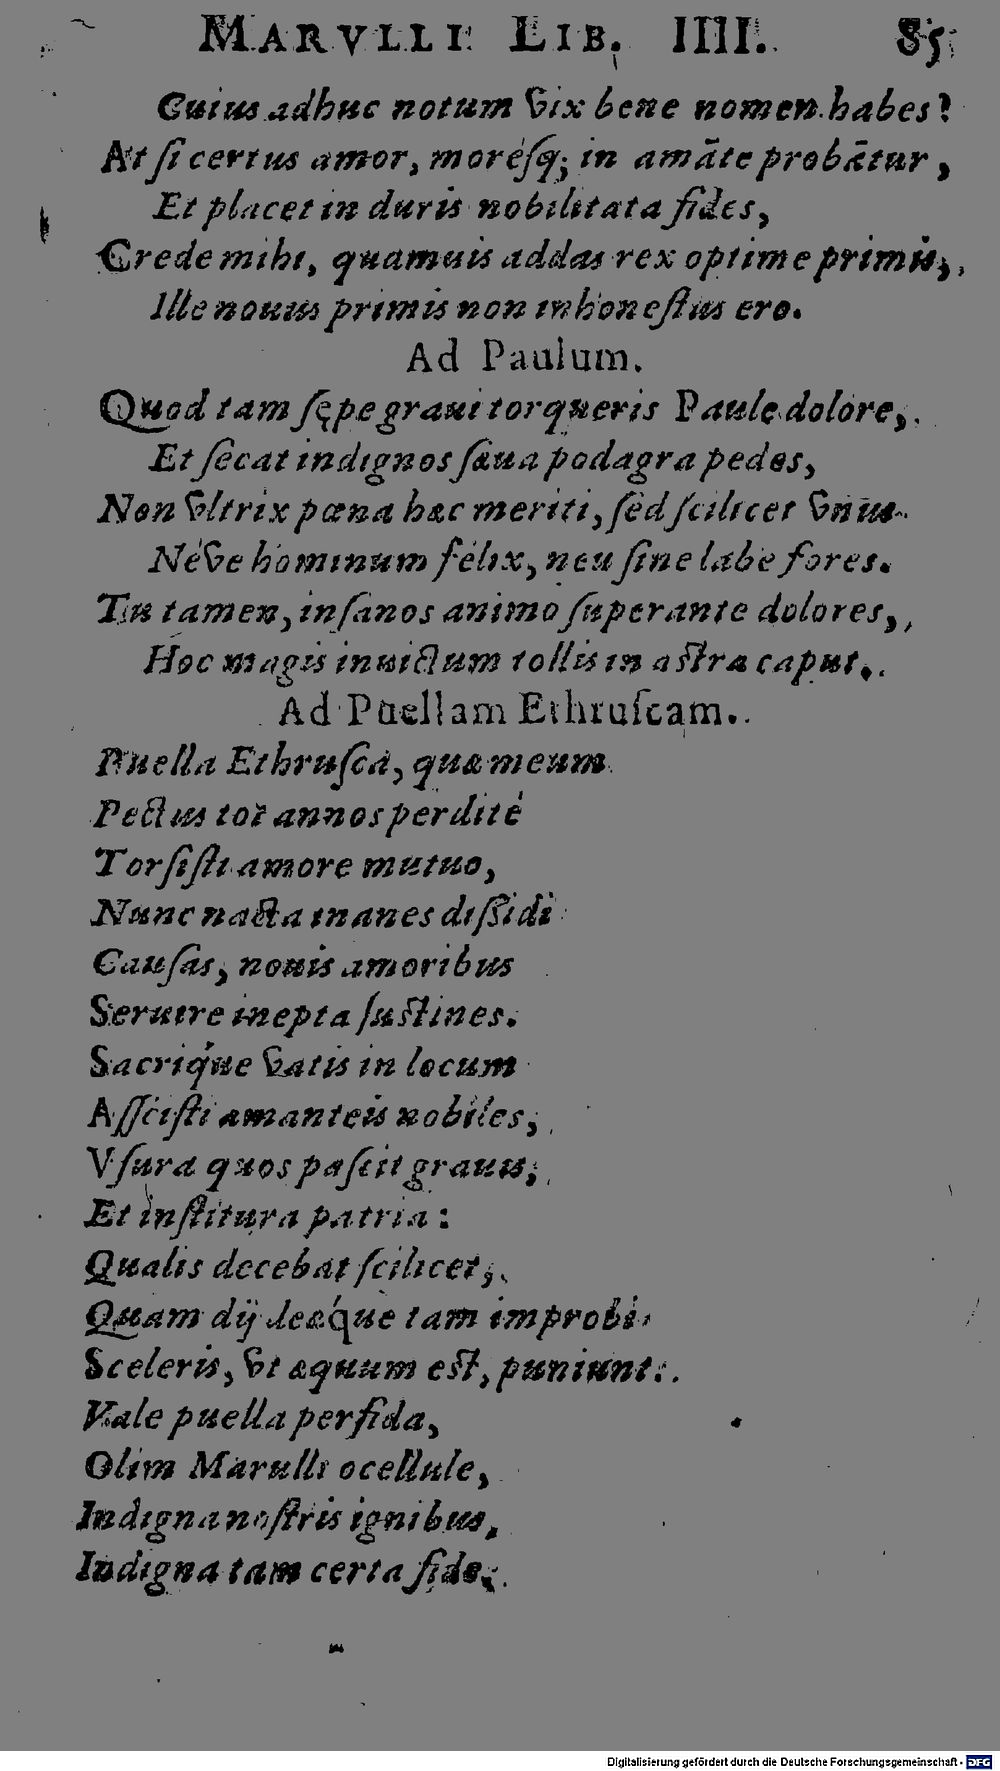 MARVLLI LIB. IIII. 85
Cuius adhuc notum vix bene nomen habes?
At si certus amor, morésq; in amãte probãtur,
Et placet in duris nobilitata fides,
Crede mihi, quamuis addas rex optime primis,
Ille nouus primis non inhonestus ero.
Ad Paulum.
Quod tam sępe graui torqueris Paule dolore,
Et secat indignos sæua podagra pedes,
Non vltrix pœna hæc meriti, sed scilicet vnus
Néve hominum felix, neu sine labe fores.
Tu tamen, insanos animo superante dolores,
Hoc magis inuictum tollis in astra caput.
Ad Puellam Ethruscam.
Puella Ethrusca, quæ meum
Pectus tot annos perdité
Torsisti amore mutuo,
Nunc nacta inanes dissidi
Causas, nouis amoribus
Seruire inepta sustines.
Sacriq́ue vatis in locum
Asscisti amanteis nobiles,
Vsura quos pascit grauis,
Et institura patria:
Qualis decebat scilicet,
Quam dij deæq́ue tam improbi
Sceleris, vt æquum est, puniunt.
Vale puella perfida,
Olim Marulli ocellule,
Indigna nostris ignibus,
Indigna tam certa fide.
Digitalisierung gefördert durch die Deutsche Forschungsgemeinschaft - DFG